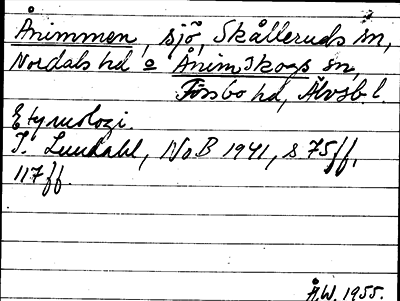 Ånimmen, sjö, Skålleruds sn,
Nordals hd o Ånimskogs sn,
Tössbo hd, Älvsb l.
Etymologi.
I. Lundahl, NoB 1941, s 75ff,
117ff.
Å.W. 1955.